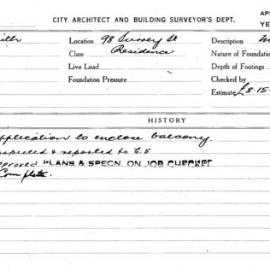 CITY ARCHITECT AND BUILDING SURVEYOR'S DEPT.
Location 98 Surrey St Description
Class Residence Nature of Foundation
Live Load Depth of Footings
Foundation Pressure Checked by
Estimate £8-15
HISTORY
pplication to enclose balcony.
nspected & reported to C.S
pproved PLANS & SPECN. ON JOB CHECKED
Complete.